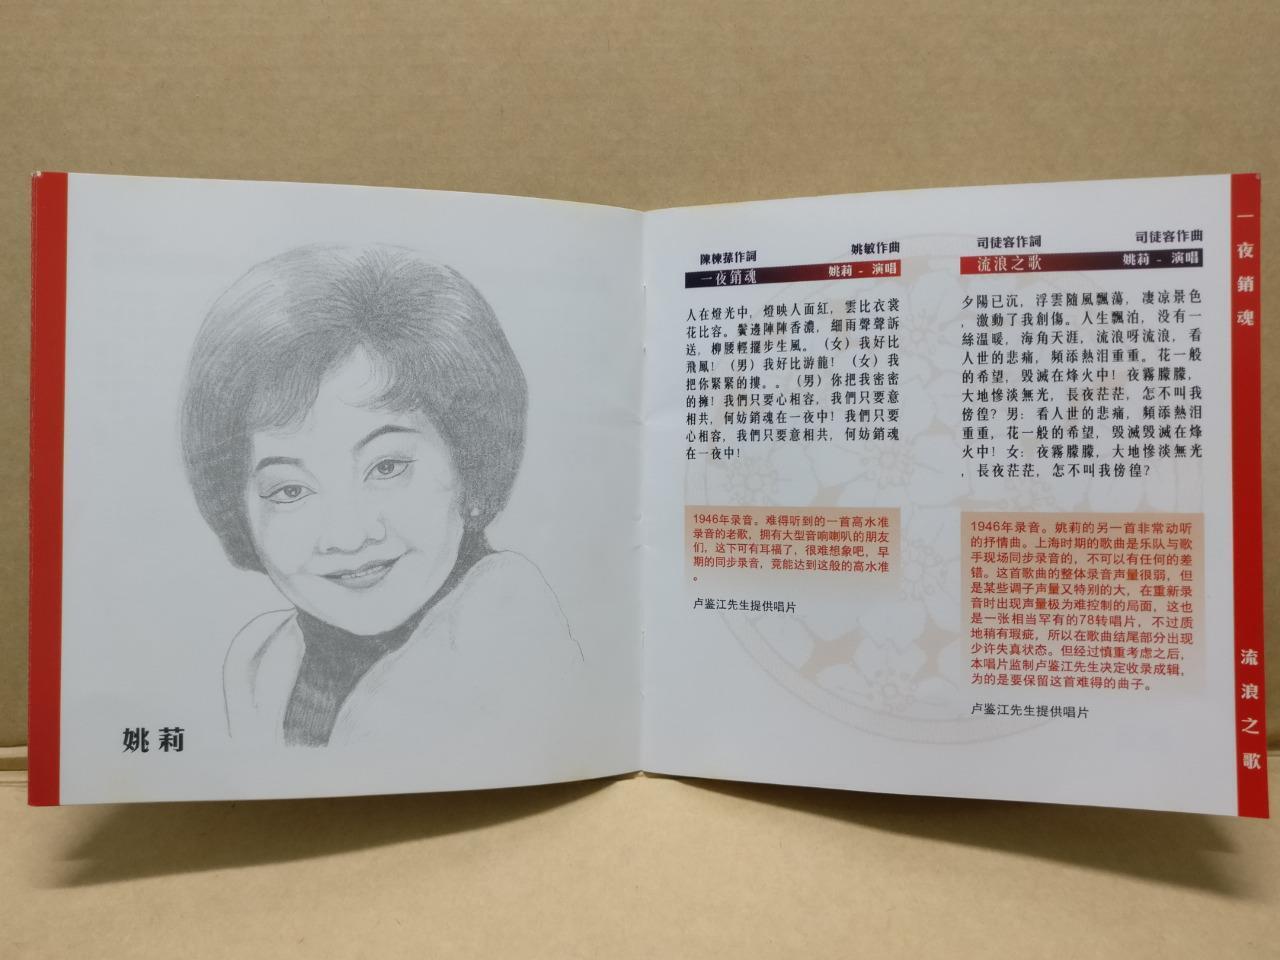 姚莉
陳棟蓀作詞 姚敏作曲
一夜銷魂 姚莉 - 演唱
人在燈光中，燈映人面紅，雲比衣裳
花比容。鬢邊陣陣香濃，細雨聲聲訴
送，柳腰輕擺步生風。（女）我好比
飛鳳！（男）我好比游龍！（女）我
把你緊緊的摟。。（男）你把我密密
的擁！我們只要心相容，我們只要意
相共，何妨銷魂在一夜中！我們只要
心相容，我們只要意相共，何妨銷魂
在一夜中！
1946年录音。难得听到的一首高水准
录音的老歌，拥有大型音响喇叭的朋友
们，这下可有耳福了，很难想象吧，早
期的同步录音，竞能达到这般的高水准
。
卢鉴江先生提供唱片
司徒容作詞 司徒容作曲
流浪之歌 姚莉 - 演唱
夕陽已沉，浮雲隨風飄蕩，凄涼景色
，激動了我創傷。人生飄泊，没有一
絲温暖，海角天涯，流浪呀流浪，看
人世的悲痛，頻添熱泪重重。花一般
的希望，毀滅在烽火中！夜霧朦朦，
大地慘淡無光，長夜茫茫，怎不叫我
傍徨？男：看人世的悲痛，頻添熱泪
重重，花一般的希望，毀滅毀滅在烽
火中！女：夜霧朦朦，大地慘淡無光
，長夜茫茫，怎不叫我傍徨？
1946年录音。姚莉的另一首非常动听
的抒情曲。上海时期的歌曲是乐队与歌
手现场同步录音的，不可以有任何的差
错。这首歌曲的整体录音声量很弱，但
是某些调子声量又特别的大，在重新录
音时出现声量极为难控制的局面，这也
是一张相当罕有的78转唱片，不过质
地稍有瑕疵，所以在歌曲结尾部分出现
少许失真状态。但经过慎重考虑之后，
本唱片监制卢鉴江先生决定收录成辑，
为的是要保留这首难得的曲子。
卢鉴江先生提供唱片
一夜銷魂
流浪之歌